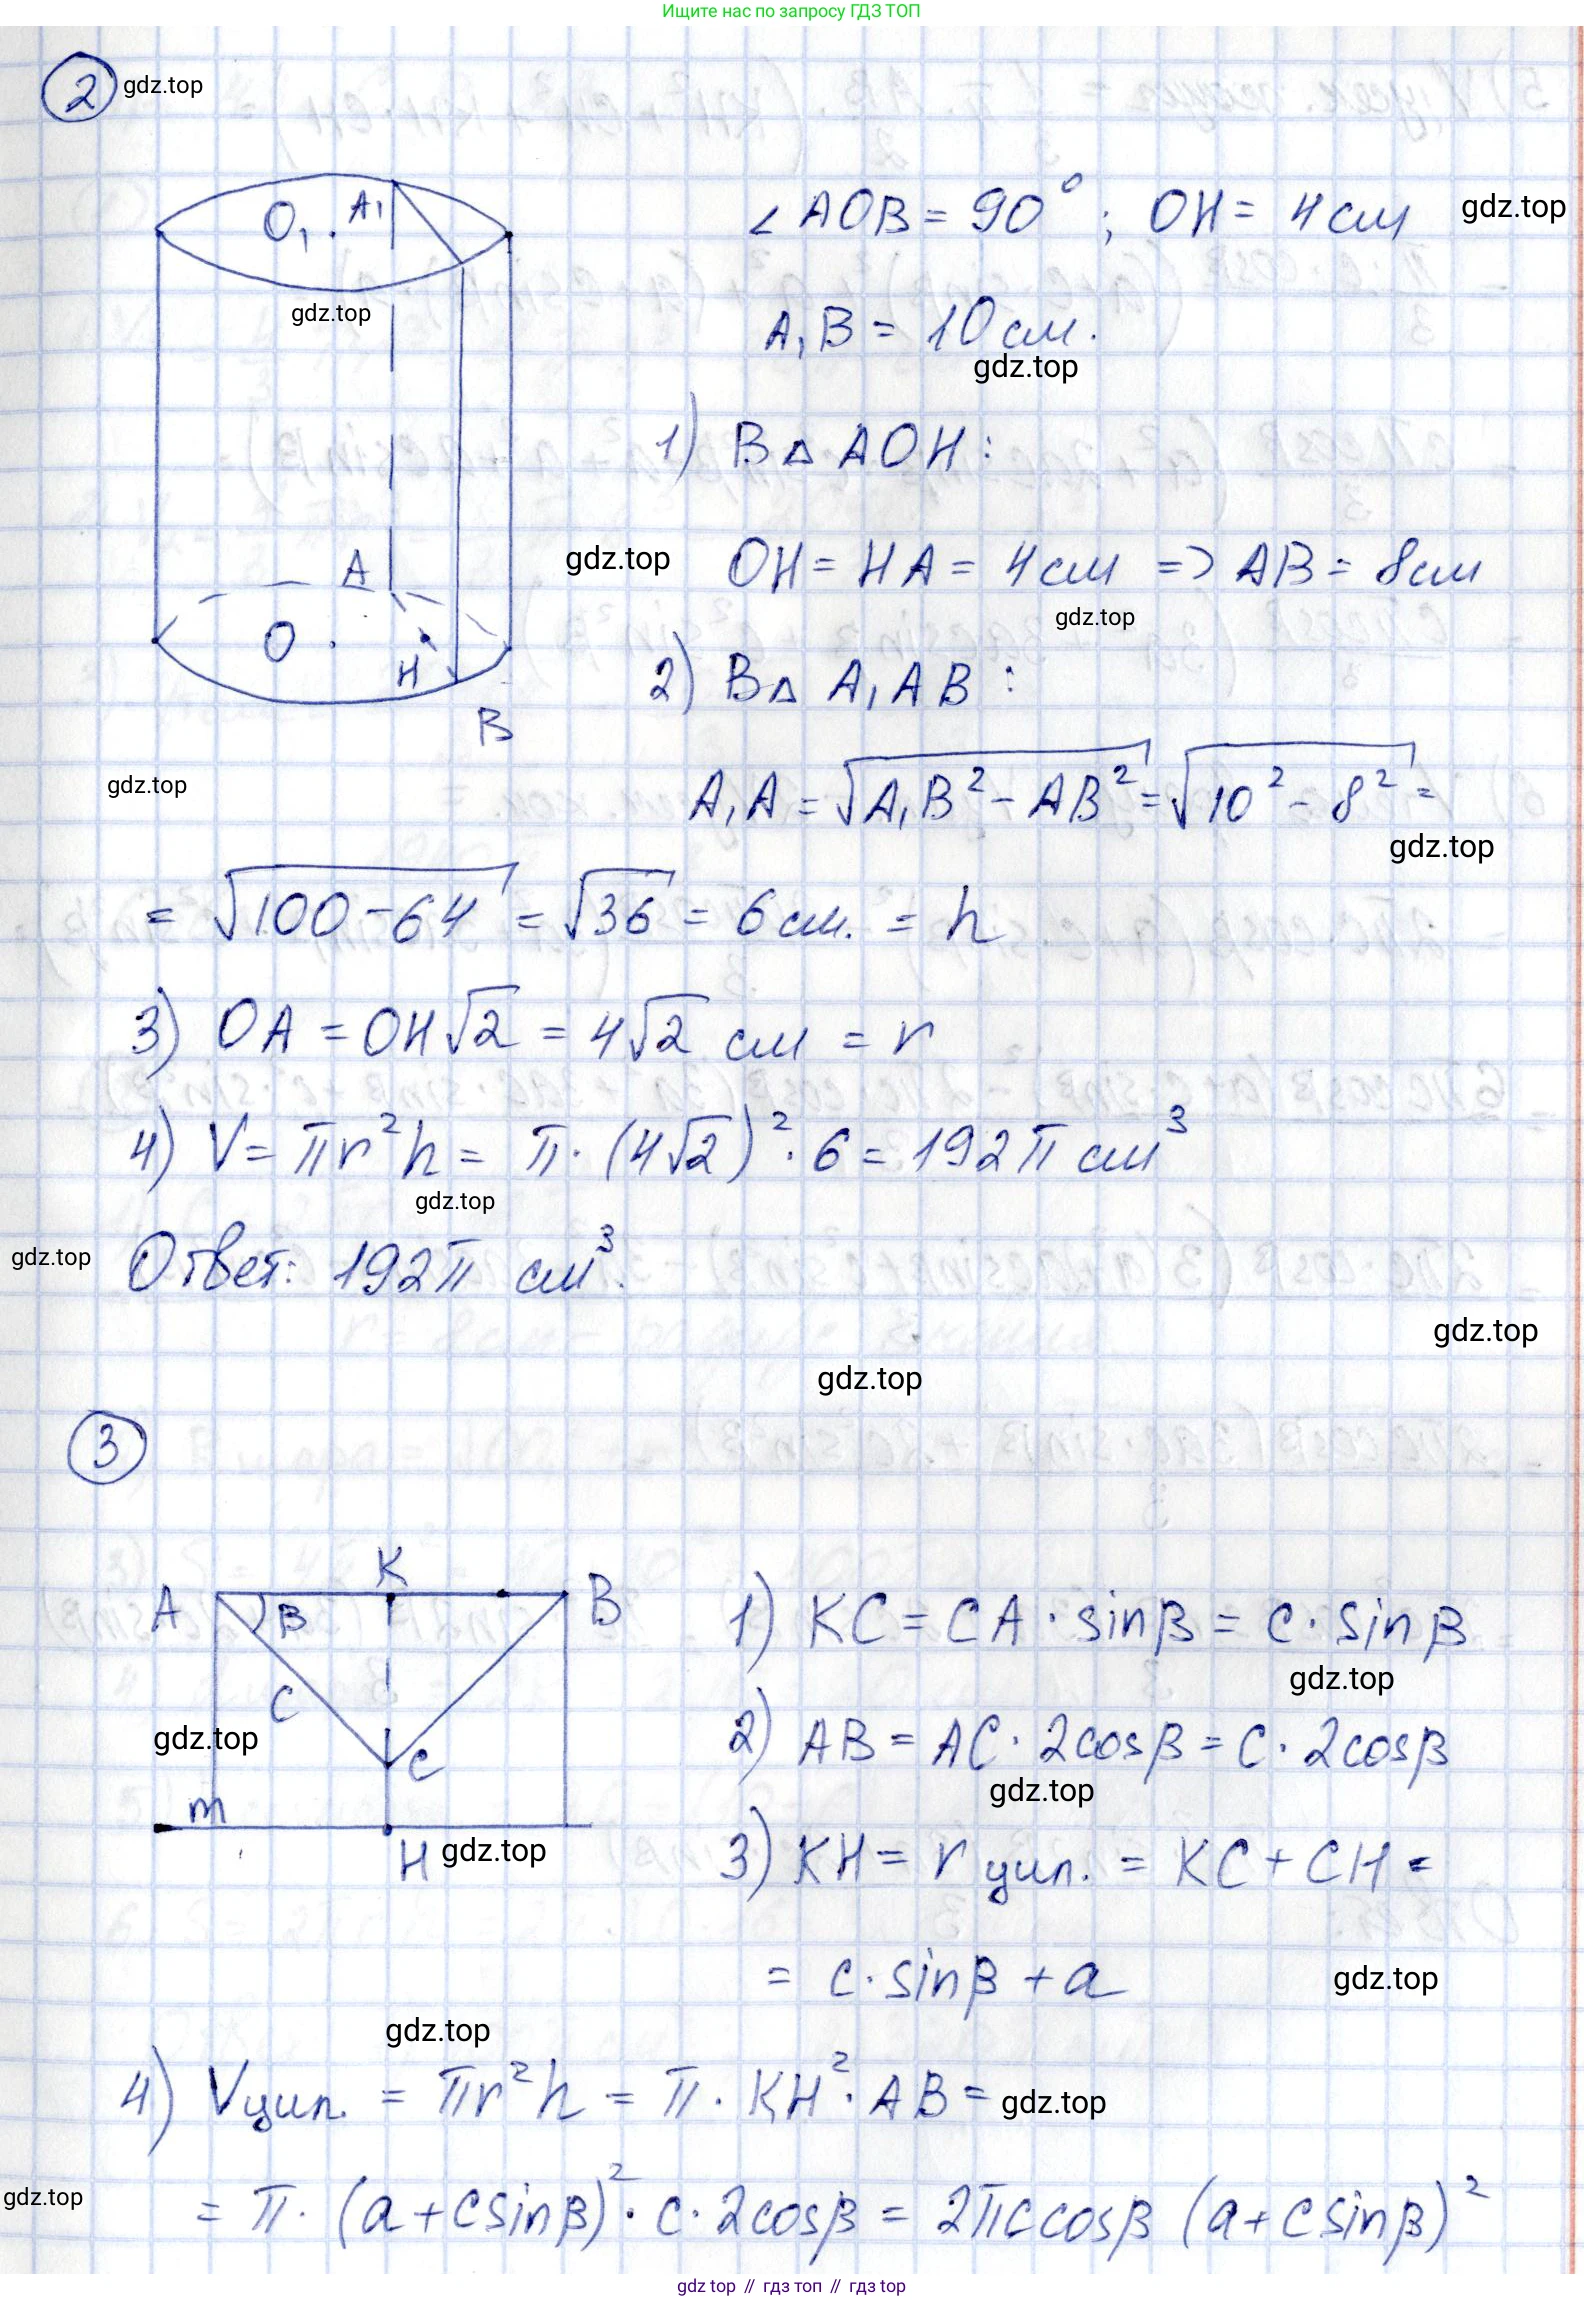 Ищите нас по запросу ГДЗ ТОП
2 gdz.top
O₁ A₁
∠AOB = 90°; OH = 4 см gdz.top
gdz.top
A₁B = 10 см.
gdz.top
1) В △ AOH:
A
gdz.top OH = HA = 4 см => AB = 8 см
gdz.top
O
H
2) В △ A₁AB:
B
gdz.top
A₁A = √(A₁B² - AB²) = √(10² - 8²) =
gdz.top
= √(100 - 64) = √36 = 6 см. = h
3) OA = OH√2 = 4√2 см = r
4) V = πr²h = π · (4√2)² · 6 = 192π см³
gdz.top
gdz.top Ответ: 192π см³.
gdz.top
gdz.top
3
K
A β B
1) KC = CA · sinβ = c · sinβ
gdz.top
c
gdz.top
C
2) AB = AC · 2cosβ = c · 2cosβ
gdz.top
m
H gdz.top
3) KH = r цил. = KC + CH =
= c · sinβ + a gdz.top
gdz.top
4) Vцил. = πr²h = π · KH² · AB = gdz.top
gdz.top = π · (a + c sinβ)² · c · 2cosβ = 2πc cosβ (a + c sinβ)²
gdz top // гдз топ // гдз top